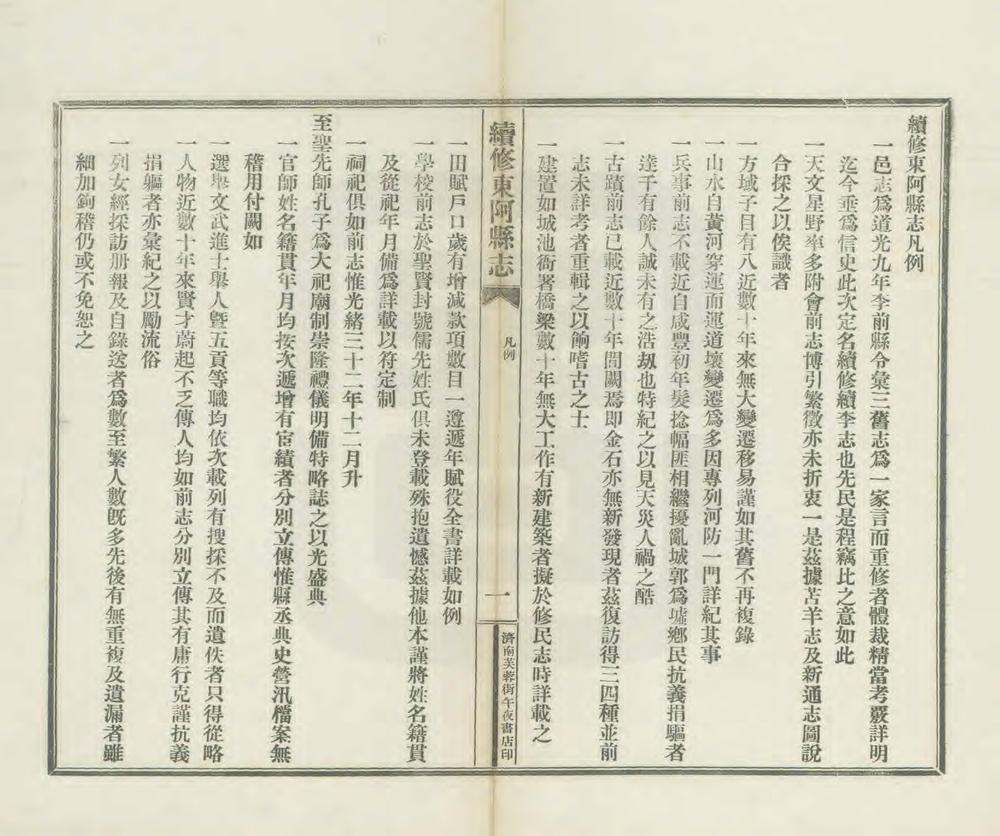 續修東阿縣志凡例
一邑志爲道光九年李前縣令彙三舊志爲一家言而重修者體裁精當考覈詳明
迄今垂爲信史此次定名續修續李志也先民是程竊比之意如此
一天文星野率多附會前志博引繁徵亦未折衷一是茲據苫羊志及新通志圖說
合採之以俟識者
一方域子目有八近數十年來無大變遷移易謹如其舊不再複錄
一山水自黃河穿運而運道壞變遷爲多因專列河防一門詳紀其事
一兵事前志不載近自咸豐初年髮捻幅匪相繼擾亂城郭爲墟鄉民抗義捐軀者
達千有餘人誠未有之浩刼也特紀之以見天災人禍之酷
一古蹟前志已載近數十年間闕焉即金石亦無新發現者茲復訪得三四種並前
志未詳考者重輯之以餉嗜古之士
一建置如城池衙署橋梁數十年無大工作有新建築者擬於修民志時詳載之
續修東阿縣志
凡例
一
濟南芙蓉街午夜書店印
一田賦戶口歲有增減款項數目一遵遞年賦役全書詳載如例
一學校前志於聖賢封號儒先姓氏俱未登載殊抱遺憾茲據他本謹將姓名籍貫
及從祀年月備爲詳載以符定制
一祠祀俱如前志惟光緒三十二年十二月升
至聖先師孔子爲大祀廟制崇隆禮儀明備特略誌之以光盛典
一官師姓名籍貫年月均按次遞增有宦績者分別立傳惟縣丞典史營汛檔案無
稽用付闕如
一選舉文武進士舉人曁五貢等職均依次載列有搜採不及而遺佚者只得從略
一人物近數十年來賢才蔚起不乏傳人均如前志分別立傳其有庸行克謹抗義
捐軀者亦彙紀之以勵流俗
一列女經採訪册報及自錄送者爲數至繁人數旣多先後有無重複及遺漏者雖
細加鉤稽仍或不免恕之